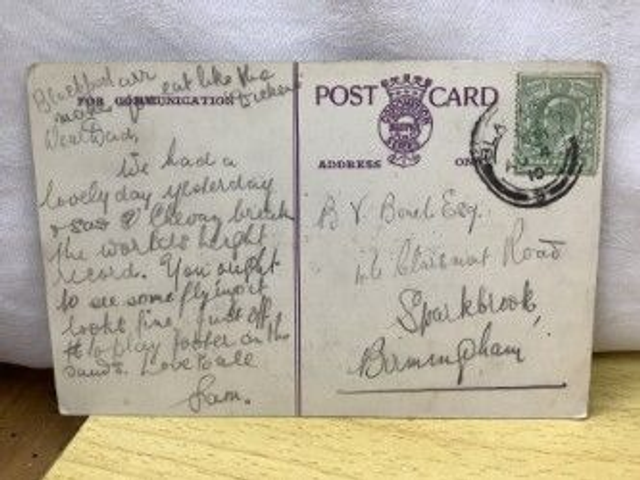 Blackpool air
makes you eat like the
dickens
FOR COMMUNICATION
Dear Dad,
We had a
lovely day yesterday
& saw break
the worlds height
record. You ought
to see some flying it
looks fine. Just off
to play footer on the
sands. Love to all
Sam.
POST CARD
ADDRESS ON
B V. Esq.
Road
Sparkbrook,
Birmingham